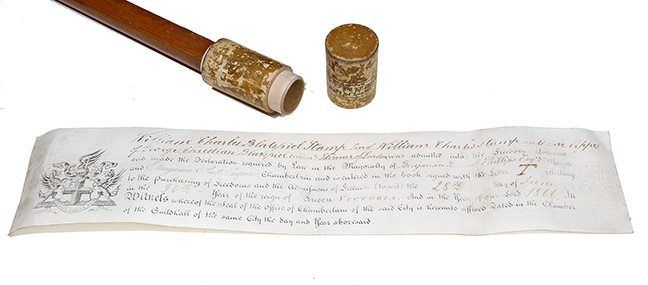 William Charles Blatspiel Stamp Son of William Charles Stamp late app
of George Christian Blatspiel Citizen Skinner of London was admitted into the Freedom aforesaid
and made the Declaration required by Law in the Mayoralty of Benjamin S Phillips Esqre Mayor
and Benjamin Scott Esquire Chamberlain and is entered in the book signed with the Letter T relating
to the Purchasing of Freedoms and the Admissions of Freemen (to wit) the 28th day of June
in the Year of the reign of Queen VICTORIA And in the Year of our Lord 1866 In
Witness whereof the Seal of the Office of Chamberlain of the said City is hereunto affixed Dated in the Chamber
of the Guildhall of the same City the day and Year abovesaid.